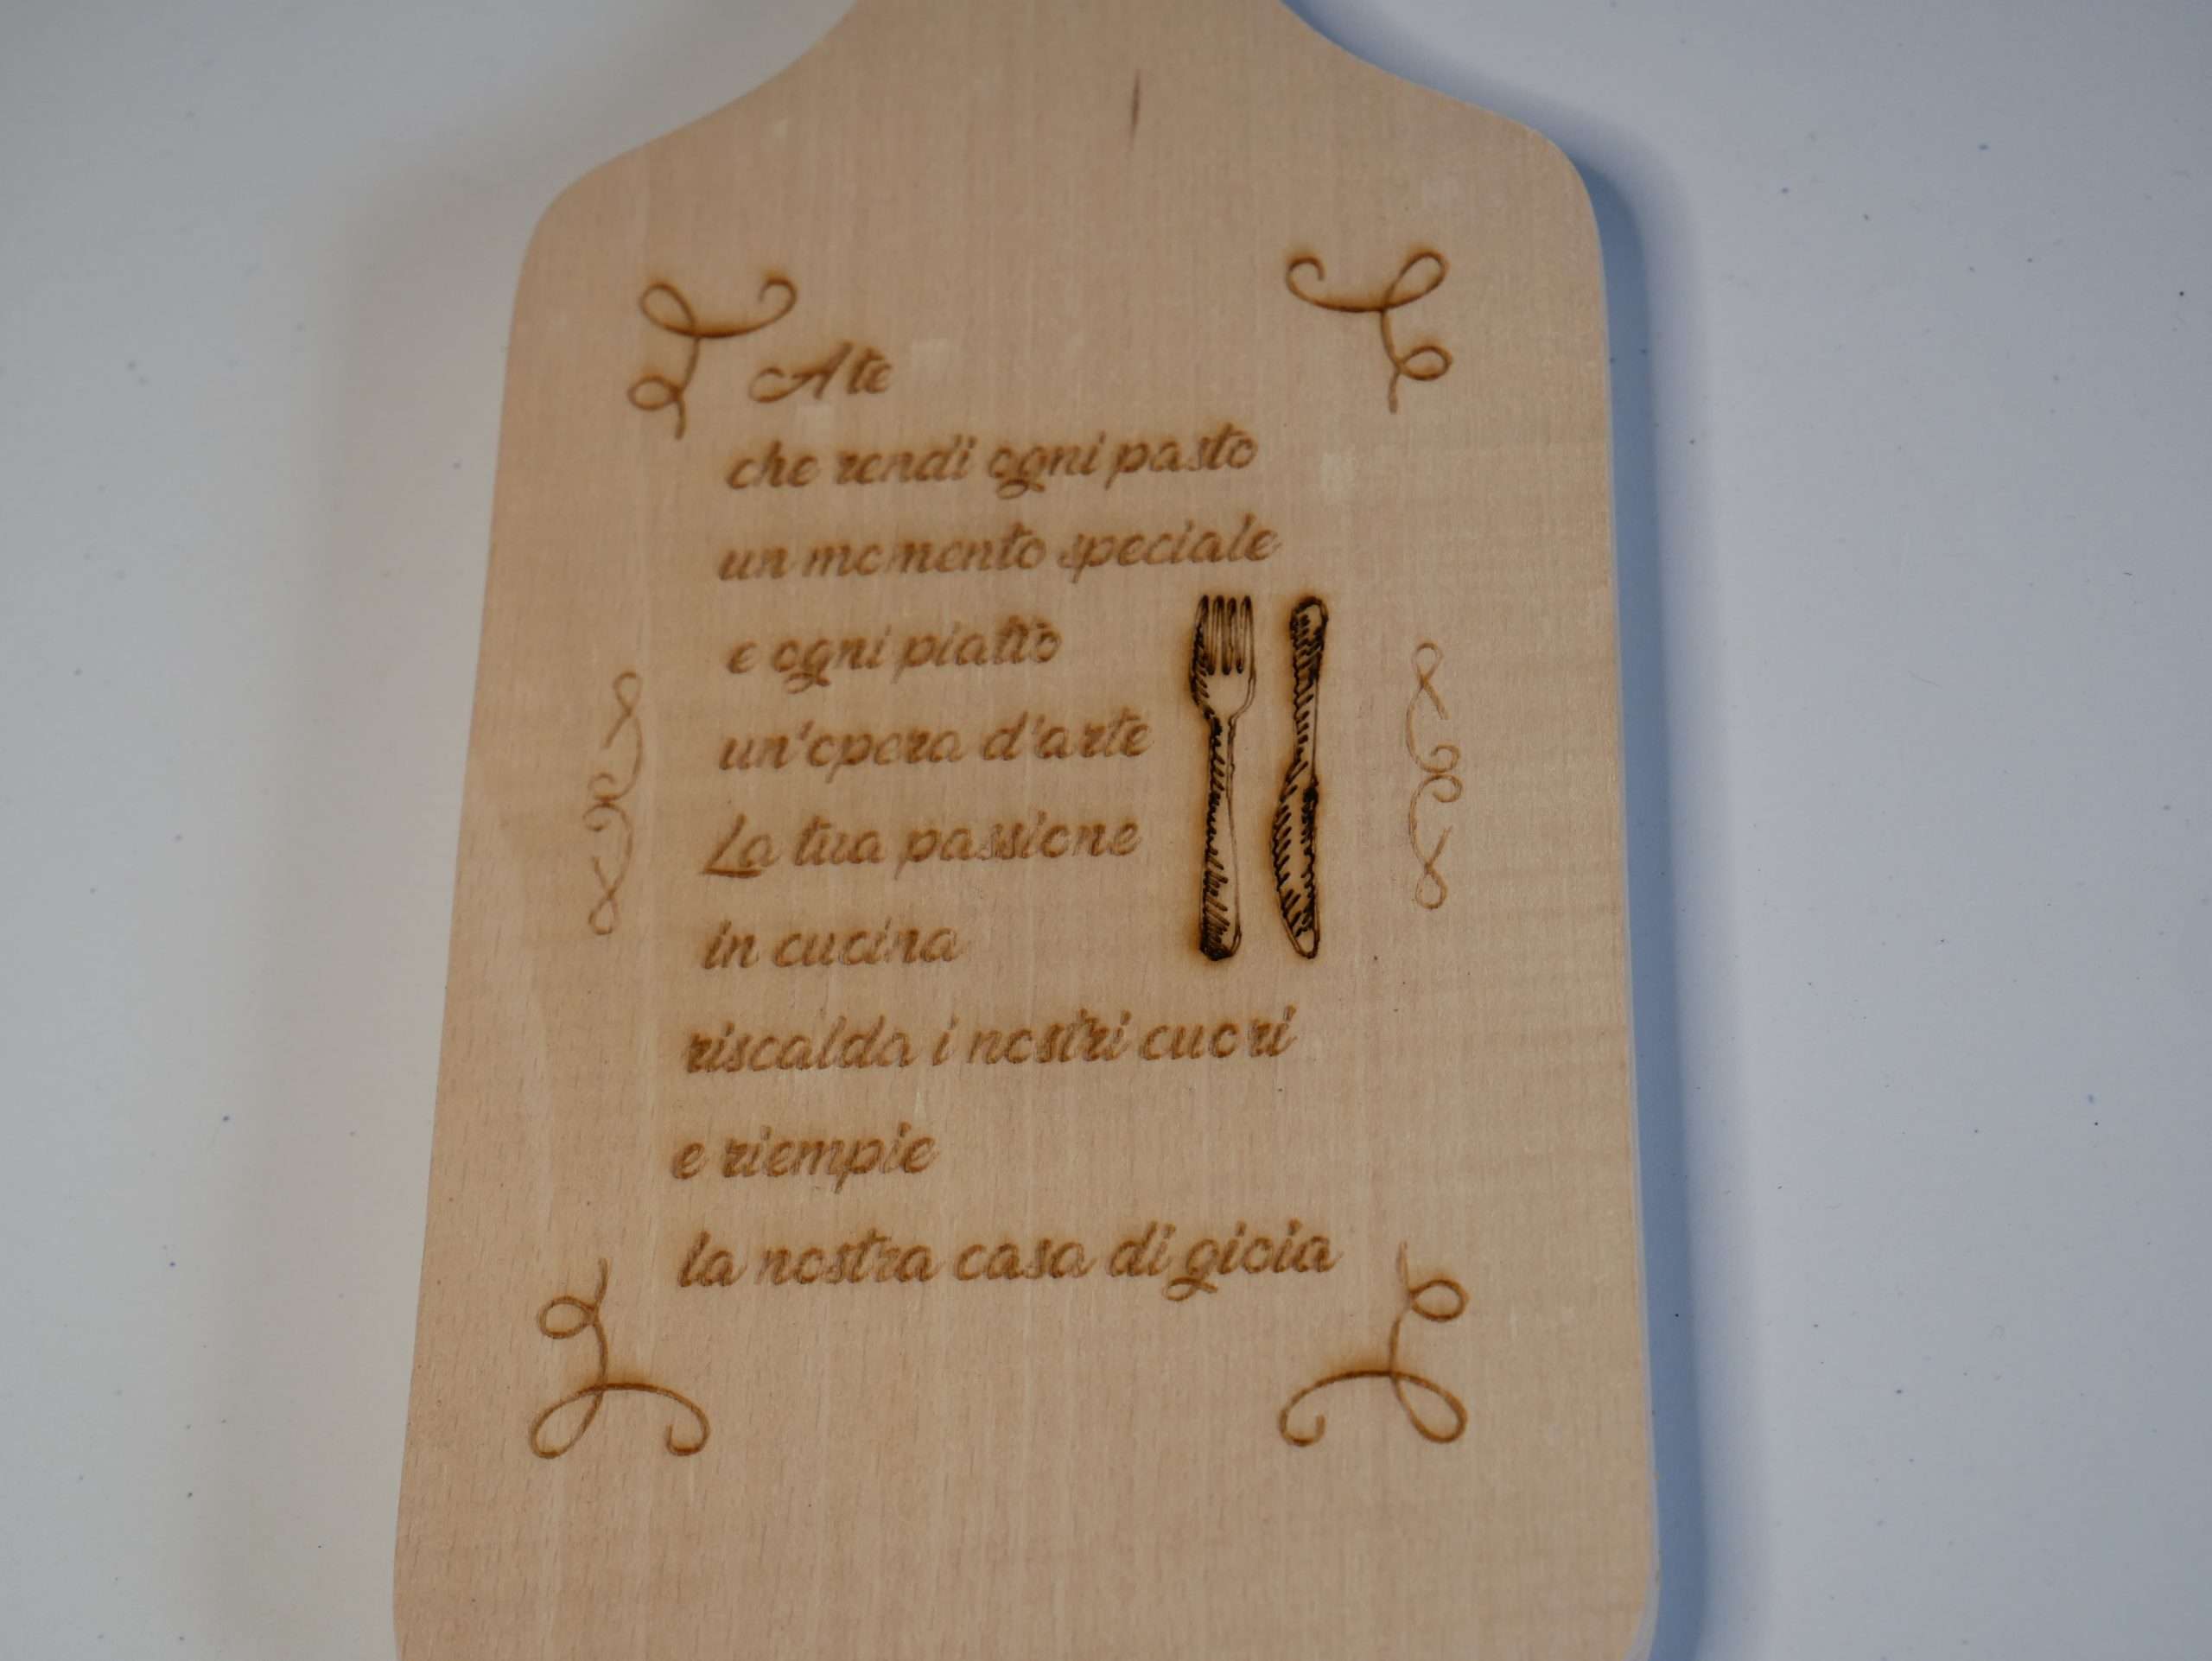 A te
che rendi ogni pasto
un momento speciale
e ogni piatto
un'opera d'arte
La tua passione
in cucina
riscalda i nostri cuori
e riempie
la nostra casa di gioia